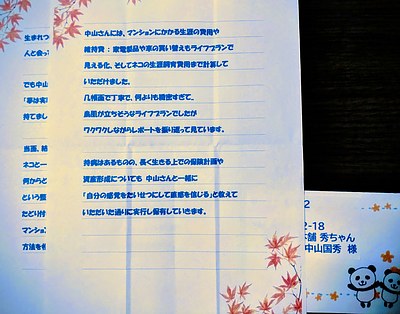 中山さんには、マンションにかかる生涯の費用や
維持費：家電部品や車の買い替えもライフプランで
見える化、そしてネコの生涯飼育費用まで計算して
いただけました。
几帳面で丁寧で、何よりも緻密すぎて、
鳥肌が立ちそうなライフプランでしたが
ワクワクしながらレポートを振り返って見ています。
持病はあるものの、長く生きる上での保険計画や
資産形成についても 中山さんと一緒に
「自分の感覚をたいせつにして直感を信じる」と教えて
いただいた通りに実行し保有していきます。
生まれつ
人と会っ
でも中山
「夢は実
持てまし
ネコと一
何からど
という備
たどり付
マンショ
方法を
2
2-18
本舗 秀ちゃん
中山国秀 様